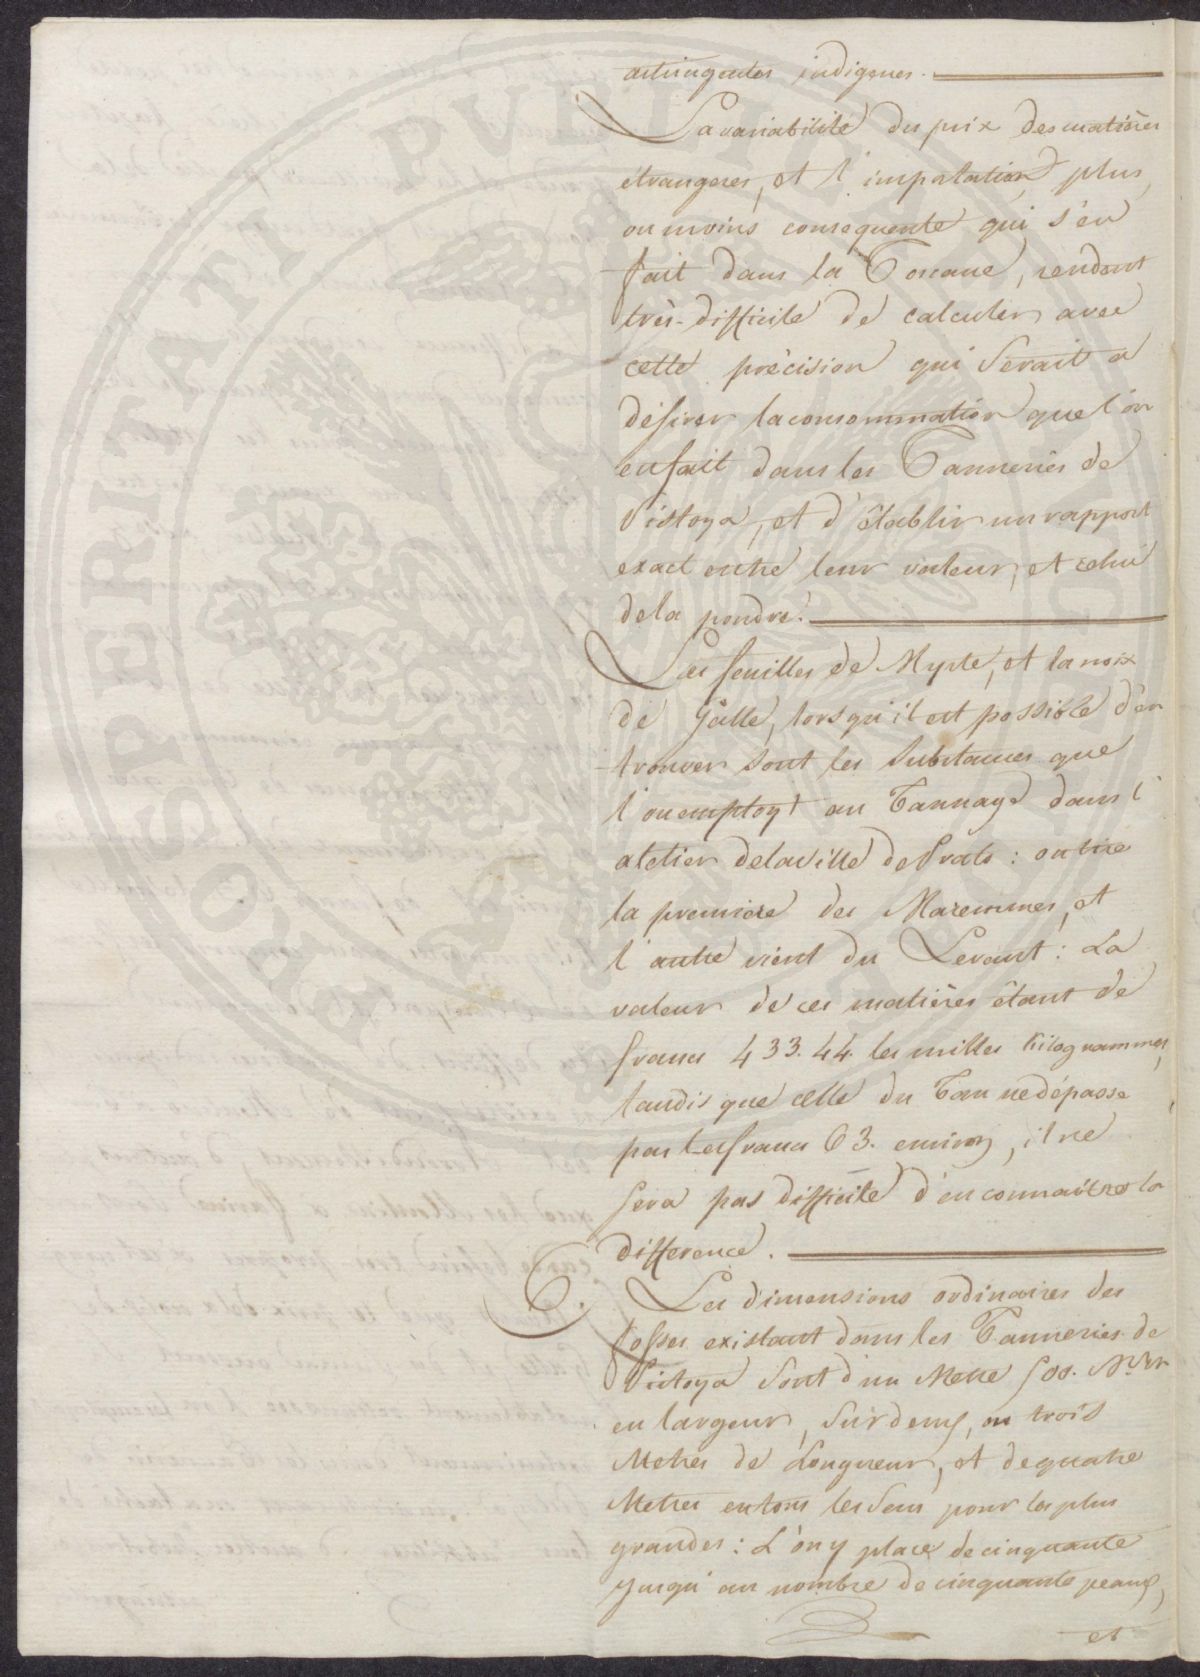 astringentes indigenes.
La variabilité du prix des matières
étrangeres, et l'importation plus,
ou moins consequente qui s'en
fait dans la Toscane, rendent
très-difficile de calculer avec
cette précision qui serait a
désirer la consommation que l'on
en fait dans les Tanneries de
Pistoya, et d'établir un rapport
exact entre leur valeur, et celui
de la poudre.
Les feuilles de Myrte, et la noix
de galle, lorsqu'il est possible d'en
trouver sont les substances que
l'on employe au Tannage dans l'
atelier de la Ville de Prato: on tire
la premiere des Maremmes, et
l'autre vient du Levant: La
valeur de ces matières étant de
francs 433.44. les milles kilogrammes,
tandis que celle du Tan ne dépasse
pas les francs 63. environ, il ne
sera pas difficile d'en connaitre la
difference.
6. Les dimensions ordinaires des
fosses existant dans les Tanneries de
Pistoya sont d'un Metre
en largeur, sur deux, ou trois
Metres de Longueur, et de quatre
Metres en tous les sens pour les plus
grandes: L'on y place de cinquante
jusqu'au nombre de cinquante peaux,
et
PROSPERITATI PVBLICAE